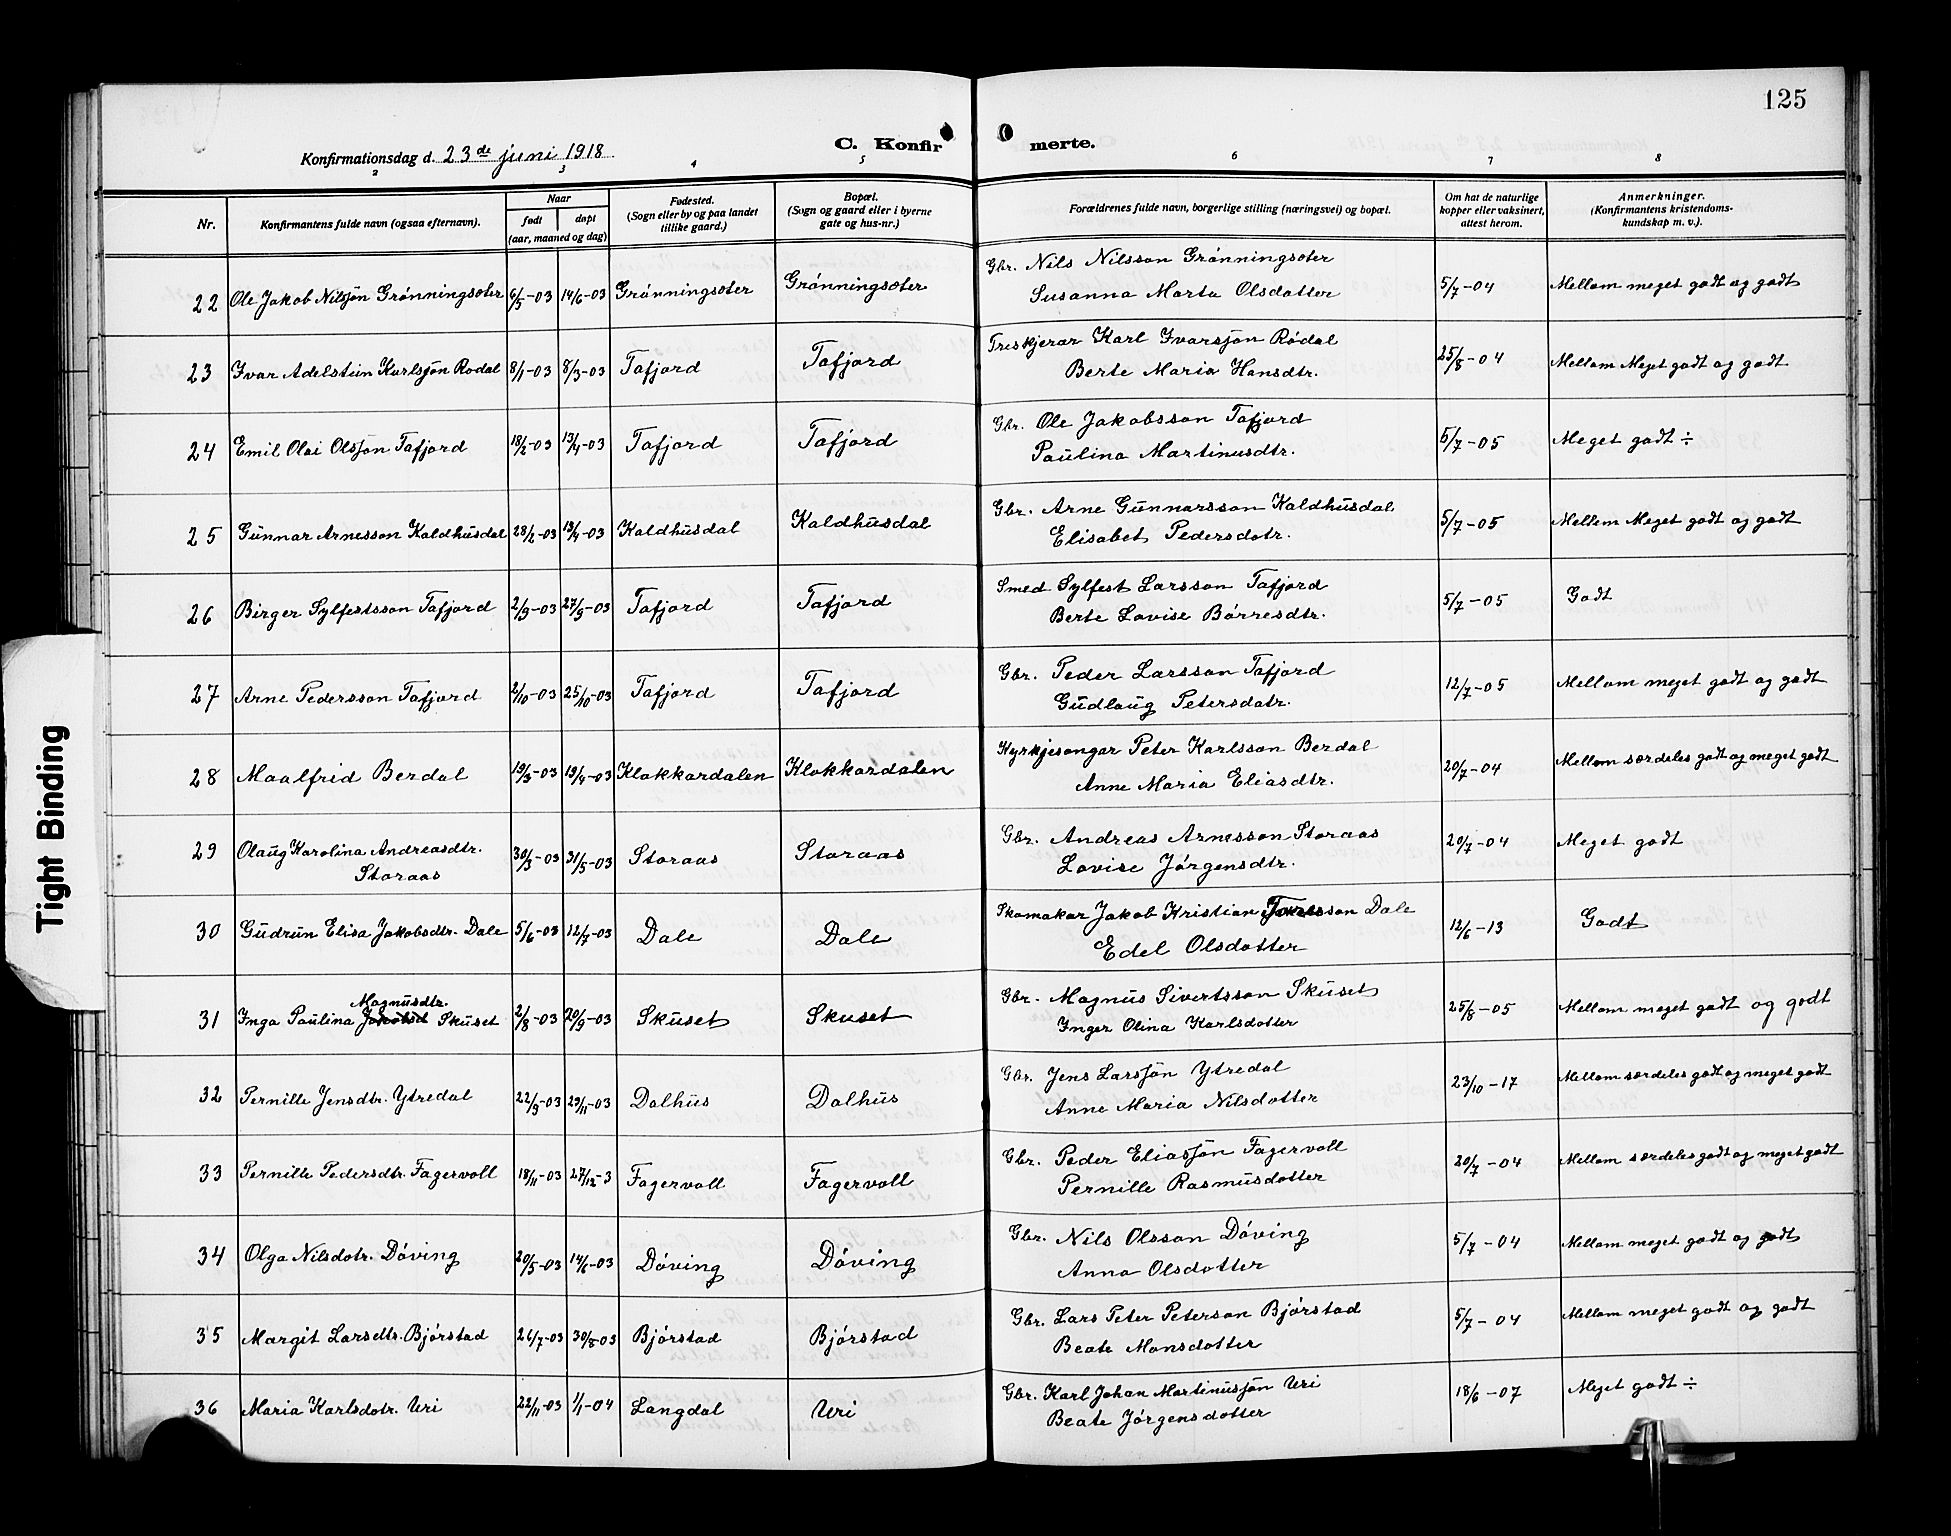 125
Konfirmationsdag d. 23de juni 1918.
C. Konfirmerte.
2 3 4 5 6 7 8
Nr.
Konfirmantens fulde navn (ogsaa efternavn).
Naar
født døpt
(aar, maaned og dag)
Fødested.
(Sogn eller by og paa landet
tillike gaard.)
Bopæl.
(Sogn og gaard eller i byerne
gate og hus-nr.)
Forældrenes fulde navn, borgerlige stilling (næringsvei) og bopæl.
Om hat de naturlige
kopper eller vaksinert,
attest herom.
Anmerkninger.
(Konfirmantens kristendoms-
kundskap m. v.).
22 Ole Jakob Nilsson Grónningsæter 6/5-03 14/6-03 Grónningsæter Grónningsæter Gbr. Nils Nilsson Grónningsæter 5/7-04 Mellom meget godt og godt
Susanna Marta Olsdotter
23 Ivar Adelstein Karlsson Rødal 8/1-03 8/3-03 Tafjord Tafjord Treskjerar Karl Ivarsson Rødal 25/8-04 Mellom Meget godt og godt
Berte Maria Hansdtr.
24 Emil Olai Olsson Tafjord 18/2-03 13/4-03 Tafjord Tafjord Gbr. Ole Jakobsson Tafjord 5/7-05 Meget godt ÷
Paulina Martinusdtr.
25 Gunnar Arnesson Kaldhusdal 28/2-03 13/4-03 Kaldhusdal Kaldhusdal Gbr. Arne Gunnarsson Kaldhusdal 5/7-05 Mellom Meget godt og godt
Elisabet Pedersdotr.
26 Birger Sylfestsson Tafjord 2/9-03 27/9-03 Tafjord Tafjord Smed Sylfest Larsson Tafjord 5/7-05 Godt
Berte Lovise Bórresdtr.
27 Arne Pedersson Tafjord 2/10-03 25/10-03 Tafjord Tafjord Gbr. Peder Larsson Tafjord 12/7-05 Mellom meget godt og godt
Gudlaug Petersdatr.
28 Maalfrid Berdal 19/3-03 19/4-03 Klokkardalen Klokkardalen Kyrkjesongar Peter Karlsson Berdal 20/7-04 Mellom særdeles godt og meget godt
Anne Maria Eliasdtr.
29 Olaug Karolina Andreasdtr. 30/3-03 31/5-03 Storaas Storaas Gbr. Andreas Arnesson Storaas 20/7-04 Meget godt
Storaas Lovise Jórgensdtr.
30 Gudrun Elisa Jakobsdtr. Dale 5/6-03 12/7-03 Dale Dale Skomakar Jakob Kristian Toresson Dale 12/6-13 Godt
Edel Olsdotter
Magnusdtr.
31 Inga Paulina Jakobsd Skuset 2/8-03 20/9-03 Skuset Skuset Gbr. Magnus Sivertsson Skuset 25/8-05 Mellom meget godt og godt
Inger Olina Karlsdotter
32 Pernille Jensdtr. Ytredal 22/9-03 29/11-03 Dalhus Dalhus Gbr. Jens Larsson Ytredal 23/10-17 Mellom særdeles godt og meget godt
Anne Maria Nilsdotter
33 Pernille Pedersdtr. Fagervoll 18/11-03 27/12-3 Fagervoll Fagervoll Gbr. Peder Eliasson Fagervoll 20/7-04 Mellom særdeles godt og meget godt
Pernille Rasmusdotter
34 Olga Nilsdotr. Dóving 20/5-03 14/6-03 Dóving Dóving Gbr. Nils Olsson Dóving 5/7-04 Mellom meget godt og godt
Anna Olsdotter
35 Margit Larsdtr. Bjórstad 26/7-03 30/8-03 Bjórstad Bjórstad Gbr. Lars Peter Peterson Bjórstad 5/7-04 Mellom meget godt og godt
Beate Monsdotter
36 Maria Karlsdotr. Uri 22/11-03 1/1-04 Langdal Uri Gbr. Karl Johan Martinusson Uri 18/6-07 Meget godt ÷
Beate Jórgensdotter
Tight Binding